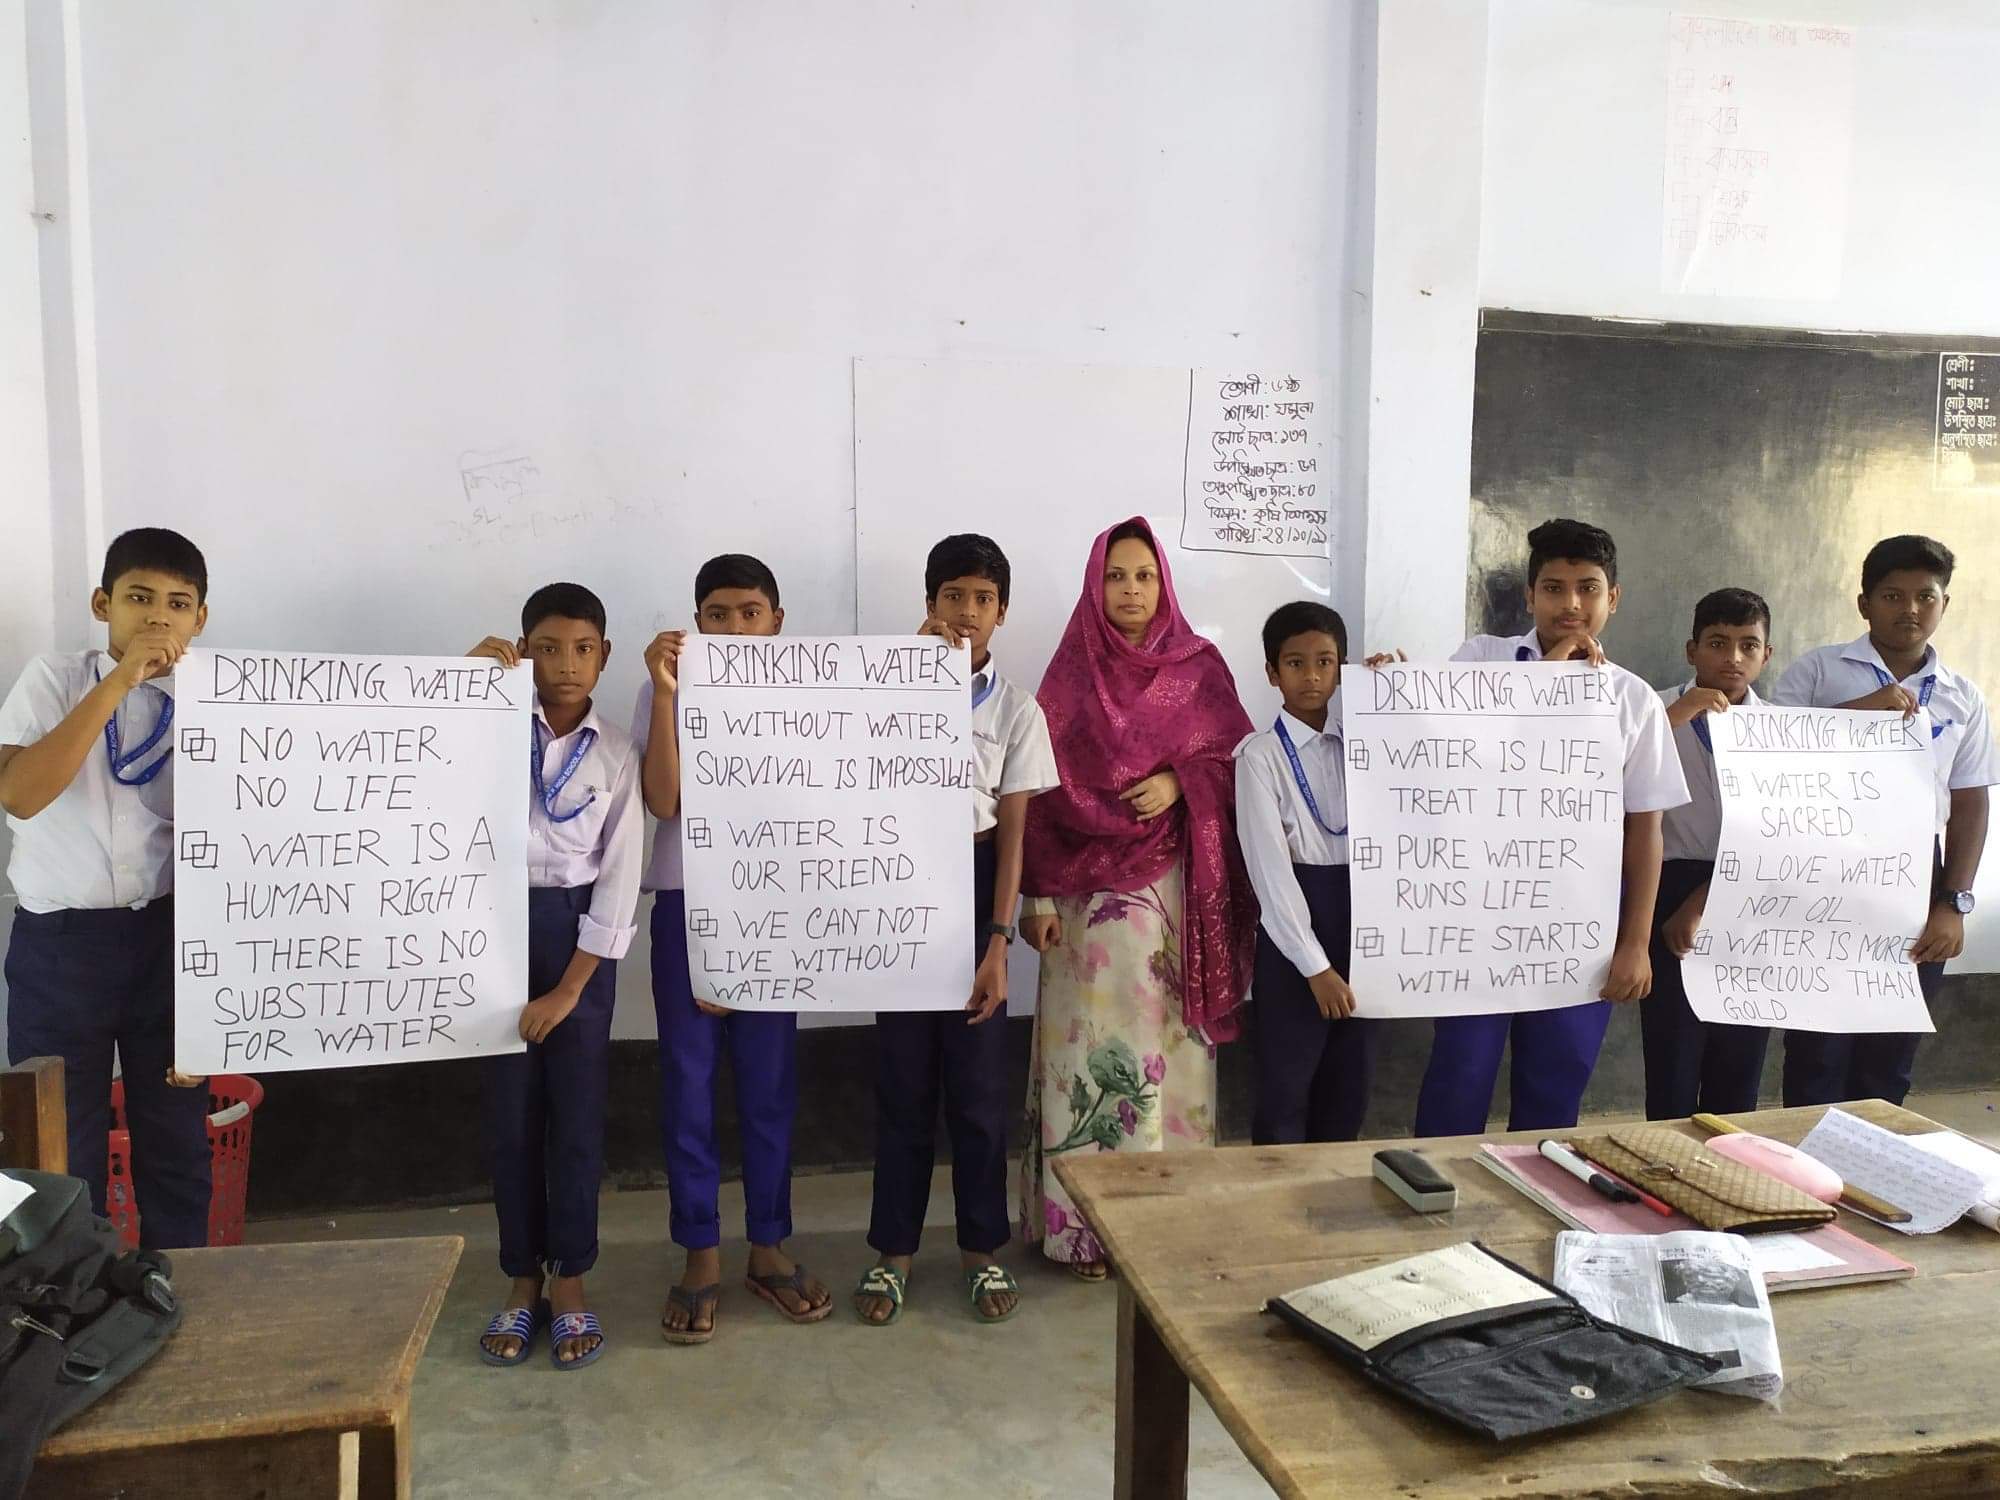 DRINKING WATER
NO WATER,
NO LIFE.
WATER IS A
HUMAN RIGHT.
THERE IS NO
SUBSTITUTES
FOR WATER.
DRINKING WATER
WITHOUT WATER,
SURVIVAL IS IMPOSSIBLE
WATER IS
OUR FRIEND.
WE CAN NOT
LIVE WITHOUT
WATER.
শ্রেণী: ৬ষ্ঠ
শাখা: যমুনা
মোট ছাত্র: ১৩৭
উপস্থিত ছাত্র: ৬৭
অনুপস্থিত ছাত্র: ৮০
বিষয়: কৃষি শিক্ষা
তারিখ: ২৪/১০/১৯
DRINKING WATER
WATER IS LIFE,
TREAT IT RIGHT.
PURE WATER
RUNS LIFE.
LIFE STARTS
WITH WATER.
DRINKING WATER
WATER IS
SACRED.
LOVE WATER
NOT OIL.
WATER IS MORE
PRECIOUS THAN
GOLD
খাদ্য
বস্ত্র
বাসস্থান
শিক্ষা
চিকিৎসা
শ্রেণী:
শাখা:
মোট ছাত্র:
উপস্থিত ছাত্র:
অনুপস্থিত ছাত্র:
HIGH SCHOOL
HIGH SCHOOL